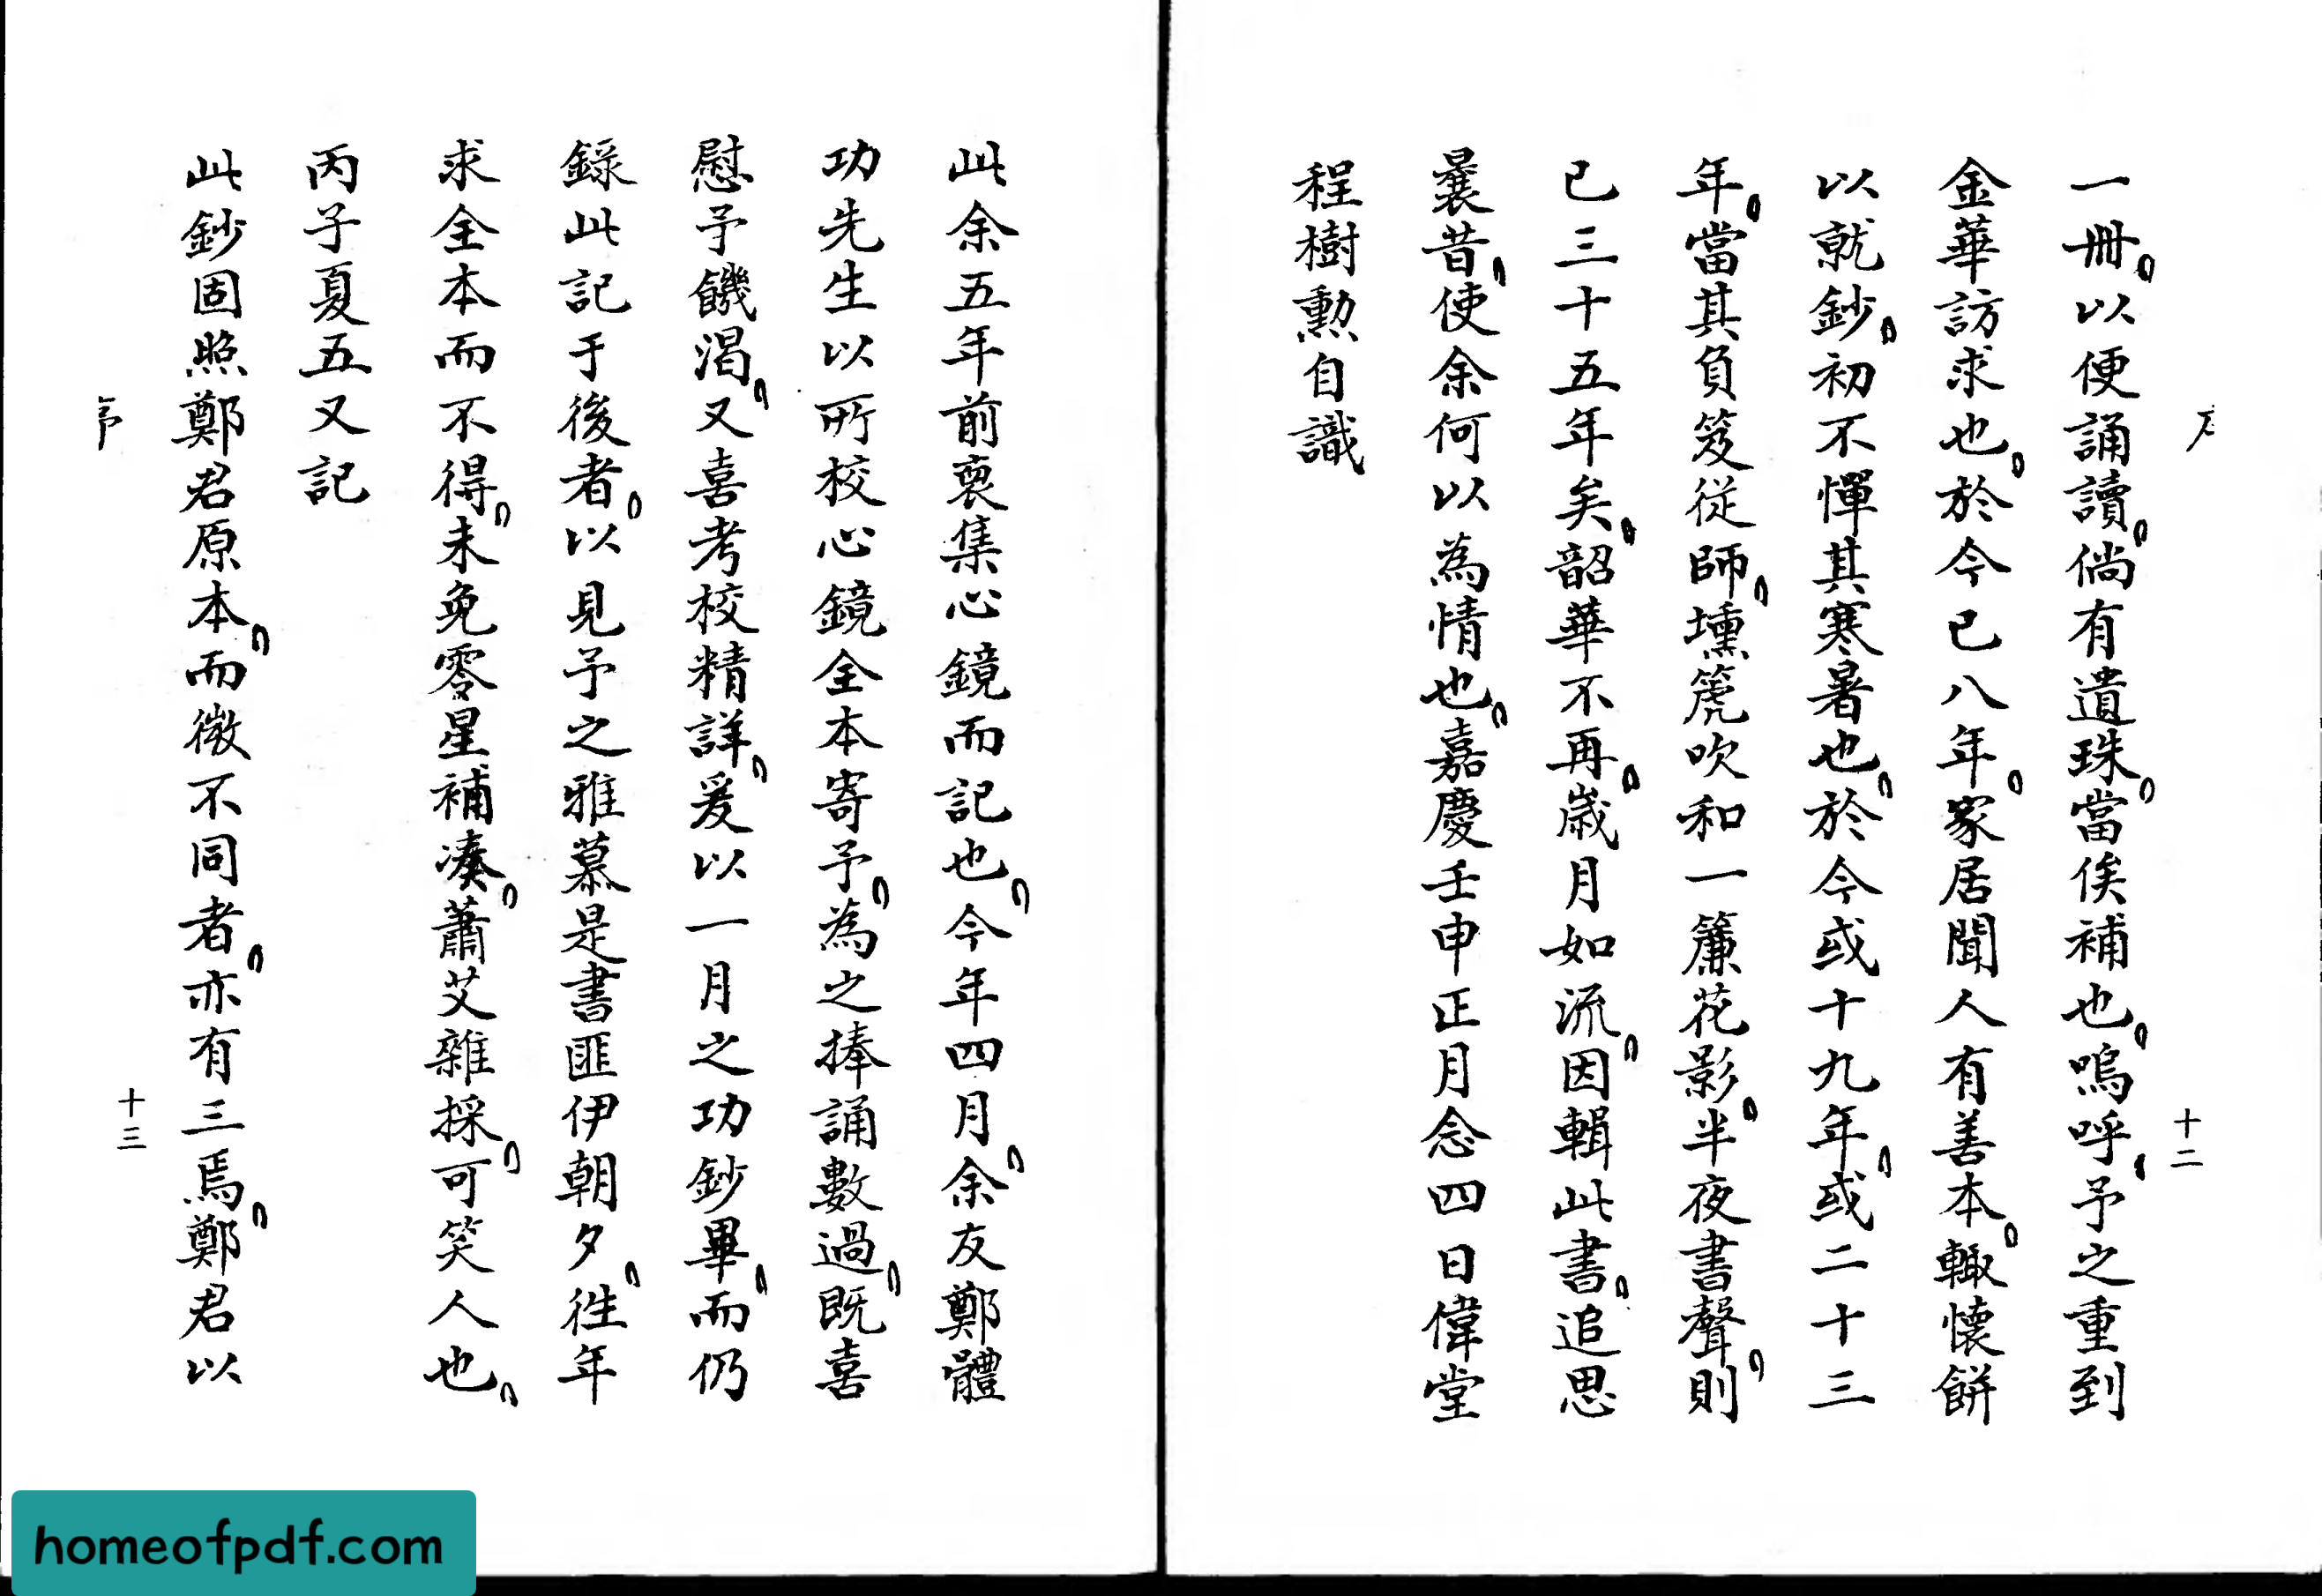 序
十二
一冊，以便誦讀，倘有遺珠，當俟補也，嗚呼，予之重到
金華訪求也，於今已八年，家居聞人有善本，輙懷餅
以就鈔，初不憚其寒暑也，於今或十九年，或二十三
年，當其負笈從師，壎篪吹和一簾花影，半夜書聲，則
已三十五年矣，韶華不再，歲月如流，因輯此書，追思
曩昔，使余何以為情也，嘉慶壬申正月念四日偉堂
程樹勲自識
此余五年前裒集心鏡而記也，今年四月，余友鄭體
功先生以所校心鏡全本寄予，為之捧誦數過，既喜
慰予饑渴，又喜考校精詳，爰以一月之功鈔畢，而仍
錄此記于後者，以見予之雅慕是書匪伊朝夕，徃年
求全本而不得，未免零星補凑，蕭艾雜採，可笑人也，
丙子夏五又記
此鈔固照鄭君原本，而微不同者，亦有三焉，鄭君以
序
十三
homeofpdf.com